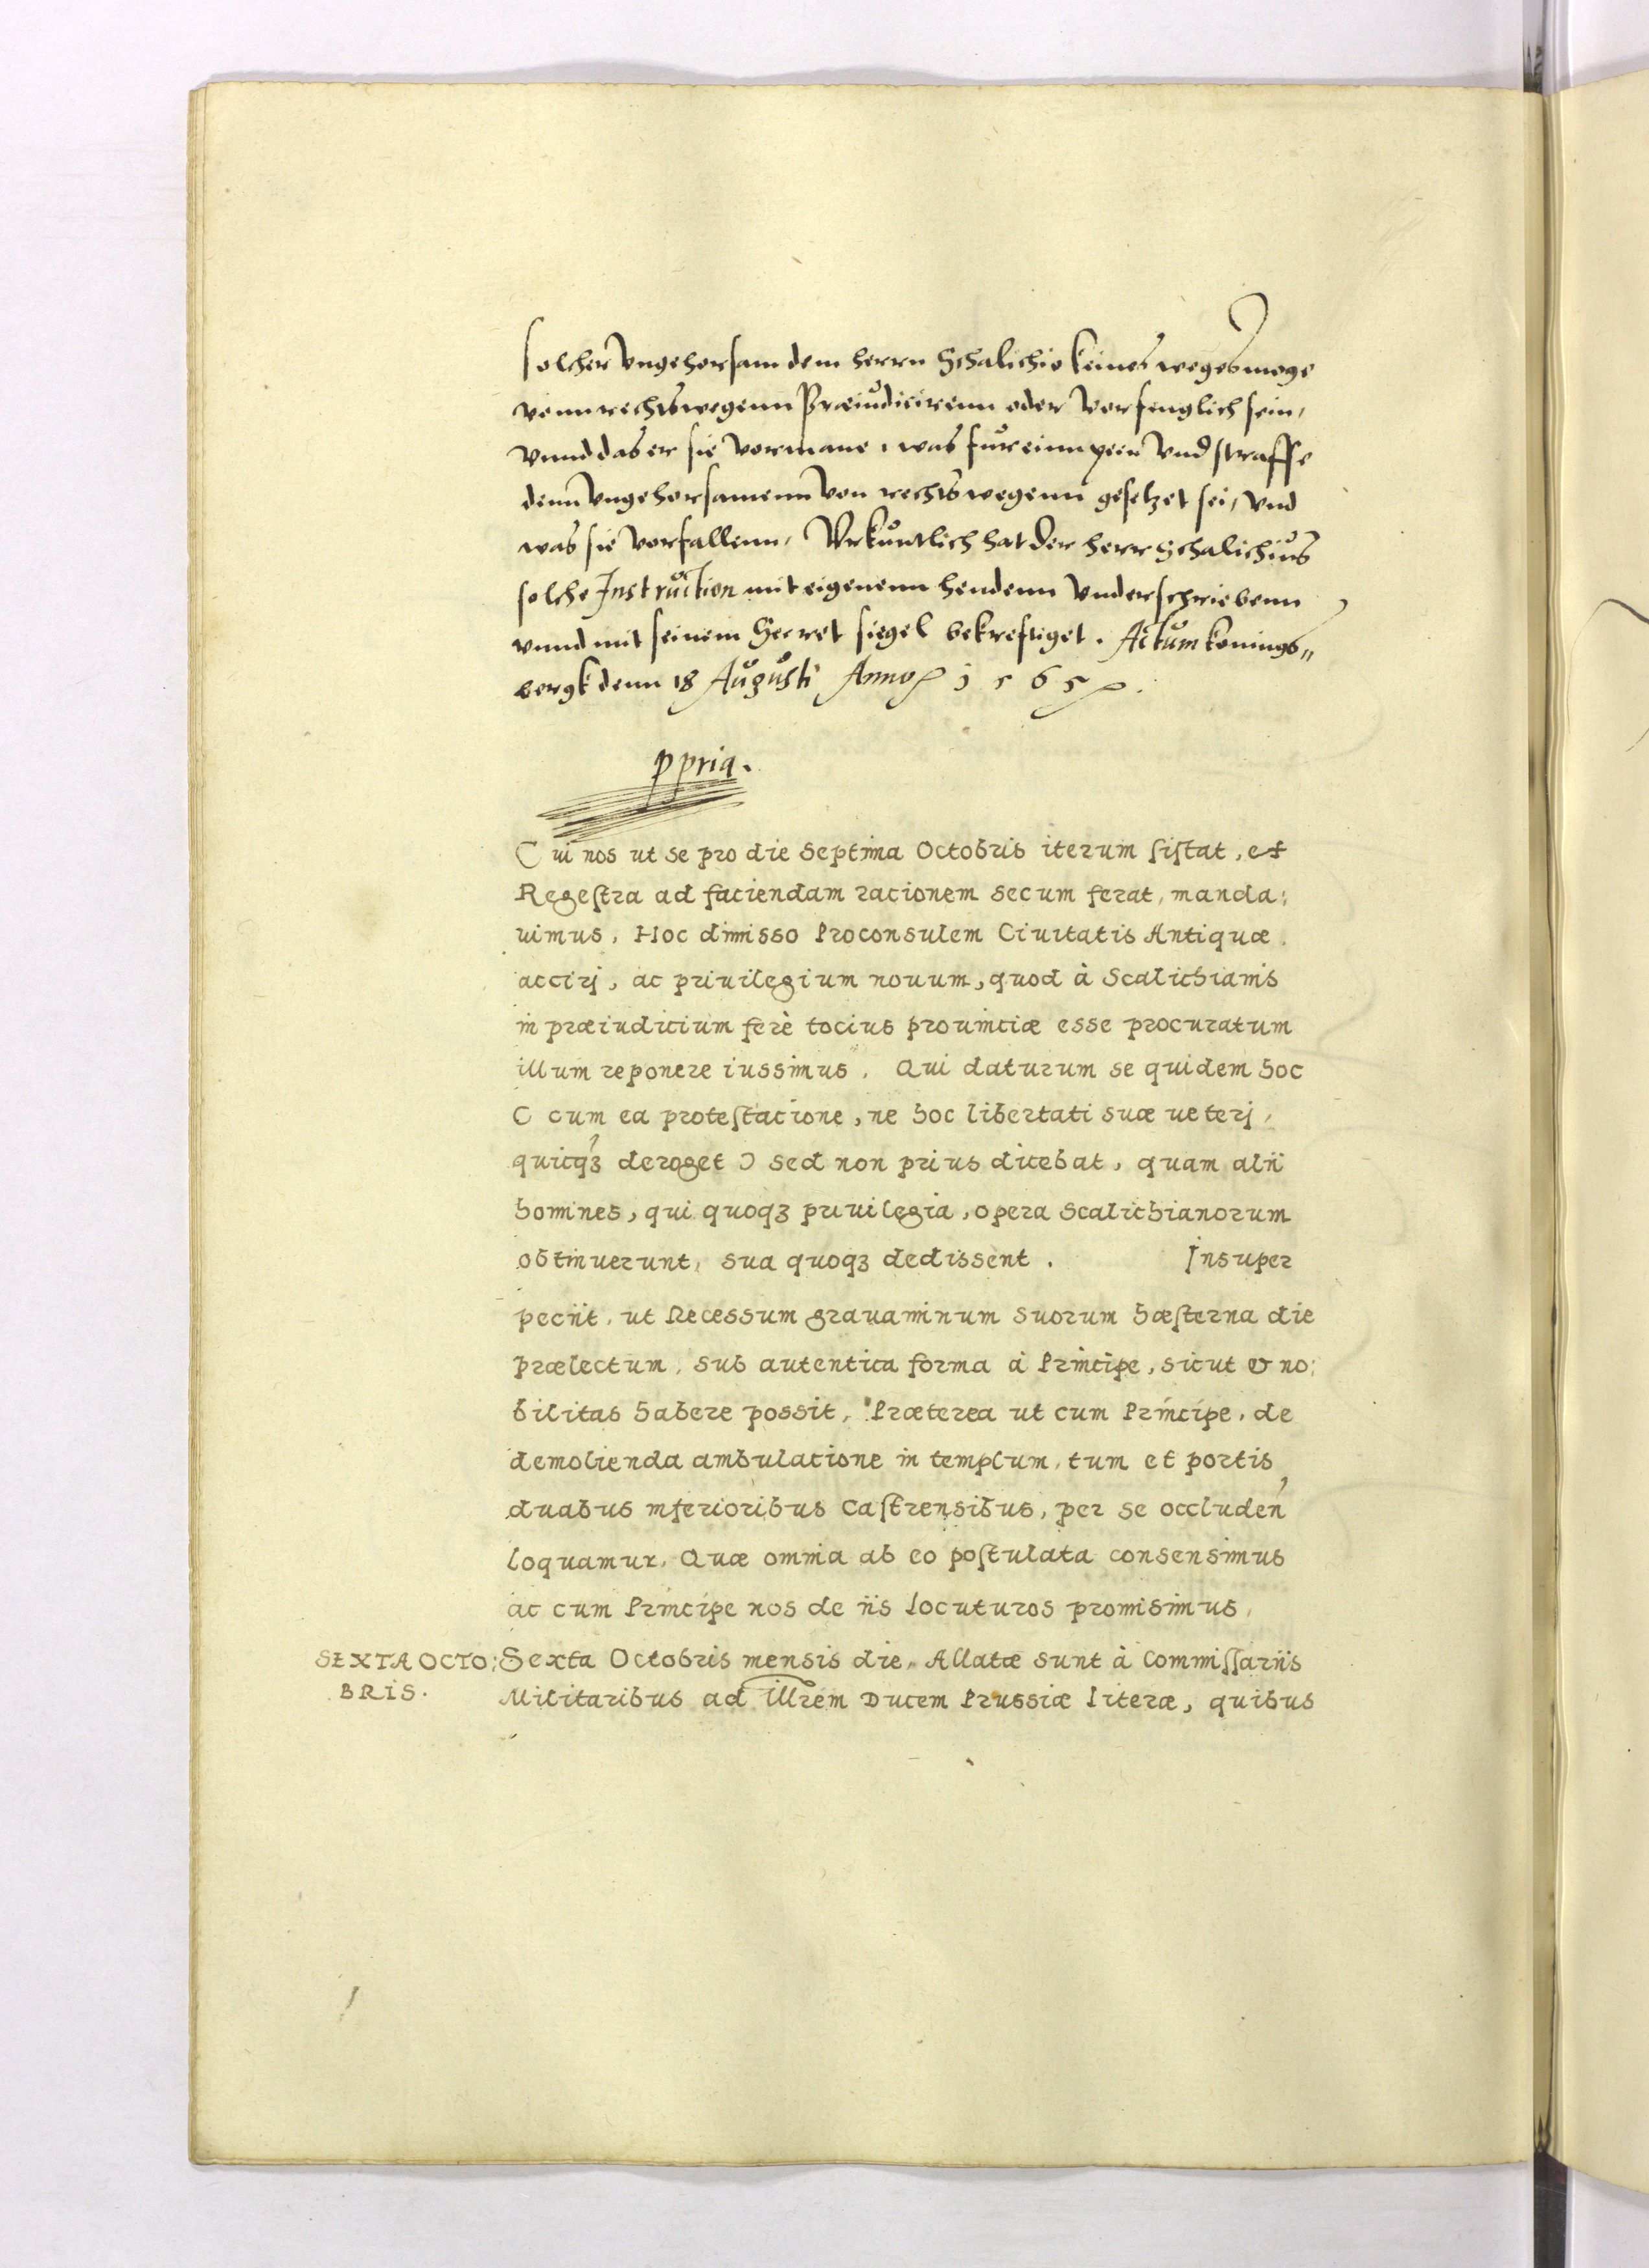 solcher vngehorsam dem herrn Schalichio keines weges moge
vonn rechtswegenn Præiudicirenn oder vorfenglich sein,
vnnd das er sie vormane, was für einn peen vnd straffe
denn vngehorsamenn von rechtswegenn gesetzet sei, vnd
was sie vorfallenn, Vrkuntlich hat der herr Schalichius
solche Instruction mit eigenenn hendenn vnderschriebenn
vnnd mit seinem Secret siegel bekreftiget. Actum Konings„
bergk denn 18 Augusti Anno 1565.
ppria.
Cui nos ut se pro die Septima Octobris iterum siſtat, et
Regeſtra ad faciendam racionem secum ferat, manda:
uimus, Hoc dimisso Proconsulem Ciuitatis Antiquæ
accirj, ac priuilegium nouum, quod à Scalichianis
in præiudicium ferè tocius prouinciæ esse procuratum
illum reponere iussimus. Qui daturum se quidem hoc
( cum ea proteſtacione, ne hoc libertati suæ ueterj,
quicqꝫ deroget ) sed non prius dicebat, quam alii
homines, qui quoqꝫ priuilegia, opera Scalichianorum
obtinuerunt, sua quoqꝫ dedissent. Insuper
peciit, ut Recessum grauaminum suorum hæſterna die
prælectum, sub autentica forma à Principe, sicut & no:
bilitas habere possit, Præterea ut cum Principe, de
demolienda ambulacione in templum, tum et portis
duabus inferioribus Caſtrensibus, per se occluden
loquamur, Quæ omnia ab eo poſtulata consensimus
ac cum Principe nos de iis locuturos promisimus,
SEXTA OCTO:
BRIS.
Sexta Octobris mensis die, Allatæ sunt à Commiſſariis
Militaribus ad Illrem Ducem Prussiæ literæ, quibus